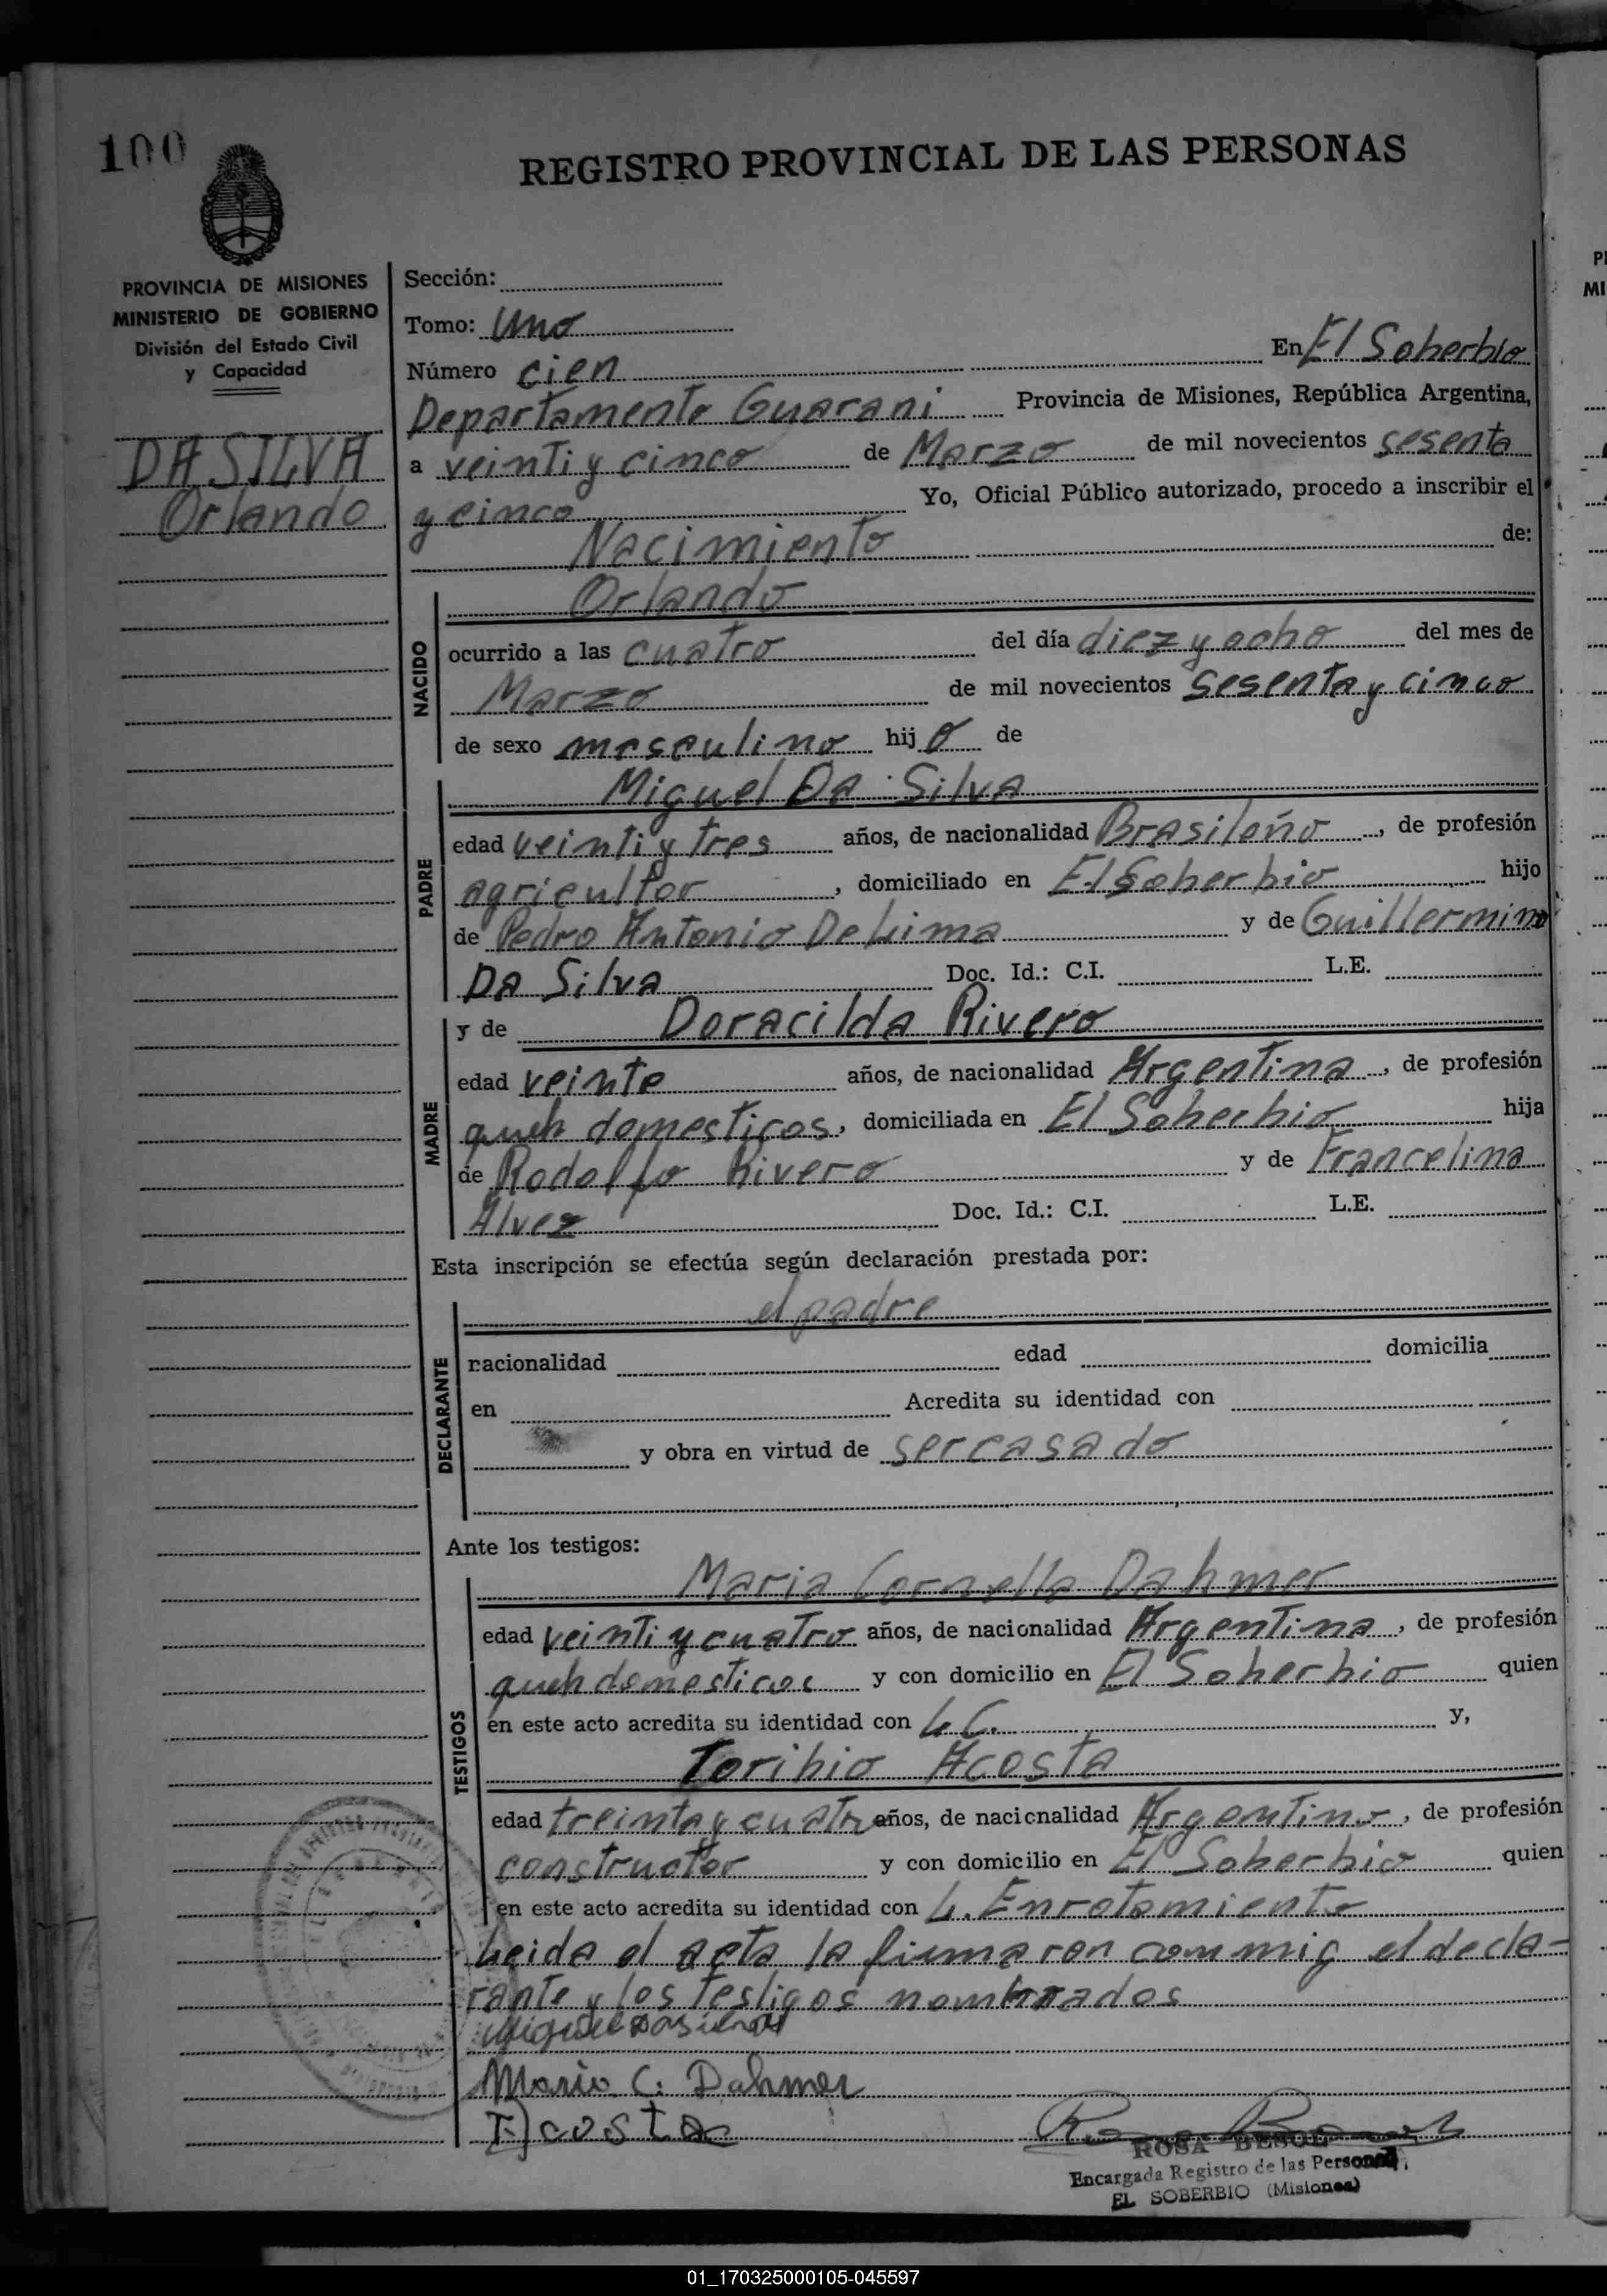 100
REGISTRO PROVINCIAL DE LAS PERSONAS
PROVINCIA DE MISIONES
MINISTERIO DE GOBIERNO
División del Estado Civil
y Capacidad
DA SILVA
Orlando
Sección:
Tomo: Uno
Número cien En El Soberbio
Departamento Guarani Provincia de Misiones, República Argentina,
a veinti y cinco de Marzo de mil novecientos sesenta
y cinco Yo, Oficial Público autorizado, procedo a inscribir el
Nacimiento de:
NACIDO
Orlando
ocurrido a las cuatro del día diez y ocho del mes de
Marzo de mil novecientos sesenta y cinco
de sexo masculino hijo de
PADRE
Miguel Da Silva
edad veinti y tres años, de nacionalidad Brasileño, de profesión
agricultor, domiciliado en El Soberbio hijo
de Pedro Antonio De Lima y de Guillermina
Da Silva Doc. Id.: C.I. L.E.
MADRE
y de Doracilda Rivero
edad veinte años, de nacionalidad Argentina, de profesión
queh domesticos, domiciliada en El Soberbio hija
de Rodolfo Rivero y de Francelina
Alvez Doc. Id.: C.I. L.E.
Esta inscripción se efectúa según declaración prestada por:
DECLARANTE
el padre
nacionalidad edad domicilia
en Acredita su identidad con
y obra en virtud de ser casado
Ante los testigos:
TESTIGOS
Maria Cornella Dahmer
edad veinti y cuatro años, de nacionalidad Argentina, de profesión
queh domesticos y con domicilio en El Soberbio quien
en este acto acredita su identidad con L. C. y,
Toribio Acosta
edad treinta y cuatro años, de nacionalidad Argentino, de profesión
constructor y con domicilio en El Soberbio quien
en este acto acredita su identidad con L. Enrolamiento
Leida el acta la firmaron conmigo el decla-
rante y los testigos nombrados
Miguel Dasilva
Maria C. Dahmer
T Acosta
ROSA BESOL
Encargada Registro de las Personas
EL SOBERBIO (Misiones)
01_170325000105-045597